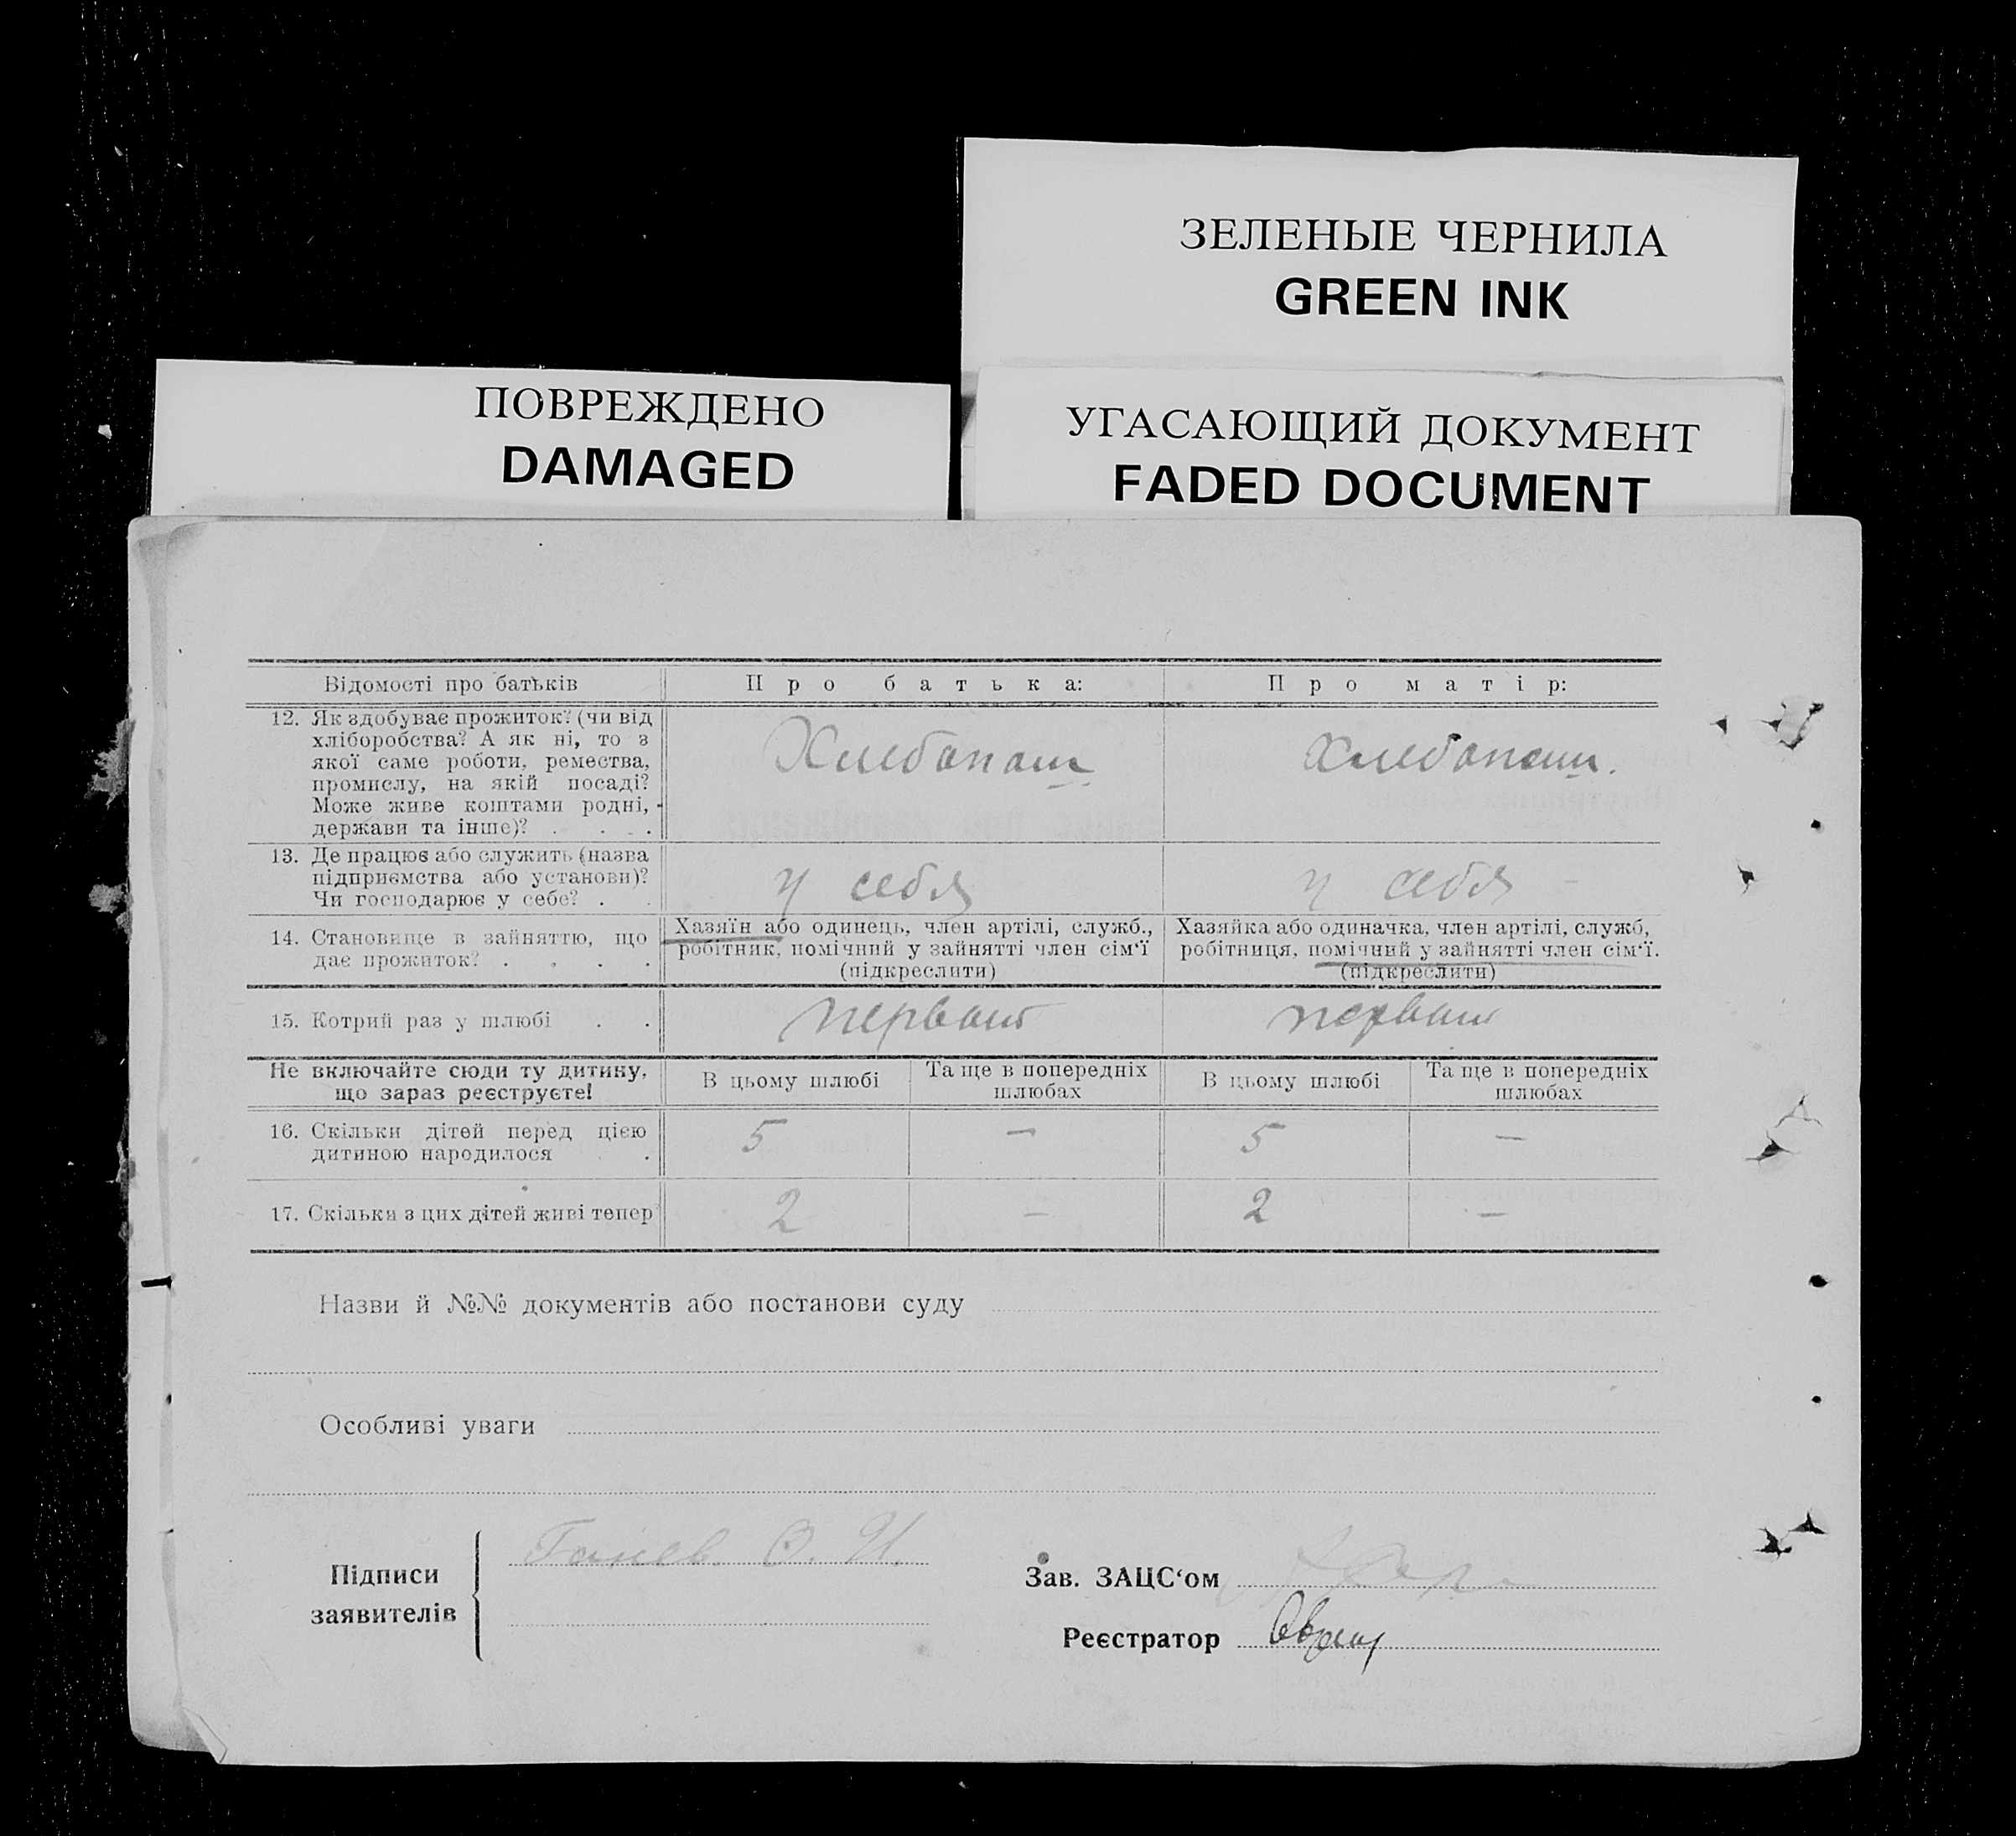 ЗЕЛЕНЫЕ ЧЕРНИЛА
GREEN INK
ПОВРЕЖДЕНО
DAMAGED
УГАСАЮЩИЙ ДОКУМЕНТ
FADED DOCUMENT
Відомості про батьків Про батька: Про матір:
12. Як здобуває прожиток? (чи від
хліборобства? А як ні, то з
якої саме роботи, ремества,
промислу, на якій посаді?
Може живе коштами родні,
держави та інше)? . . . .
Хлебопаш Хлебопаш.
13. Де працює або служить (назва
підприємства або установи)?
Чи господарює у себе? . .
у себя у себя -
14. Становище в зайняттю, що
дає прожиток? . . . .
Хазяїн або одинець, член артілі, служб.,
робітник, помічний у зайнятті член сім'ї
(підкреслити)
Хазяйка або одиначка, член артілі, служб,
робітниця, помічний у зайнятті член сім'ї.
(підкреслити)
15. Котрий раз у шлюбі . . первый первый
Не включайте сюди ту дитину,
що зараз реєструєте!
В цьому шлюбі Та ще в попередніх
шлюбах
В цьому шлюбі Та ще в попередніх
шлюбах
16. Скільки дітей перед цією
дитиною народилося . .
5 — 5 —
17. Скільки з цих дітей живі тепер 2 — 2 —
Назви й №№ документів або постанови суду
Особливі уваги
Підписи
заявителів
О. И.
Зав. ЗАЦС'ом
Реєстратор